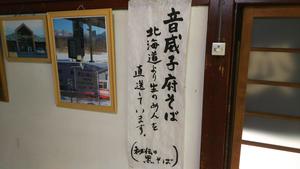 音威子府そば
北海道より生めん を
直送しています。
(秘伝の黒そば)